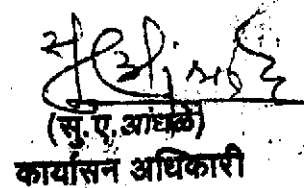 (सु. ए. आंधळे)
कार्यासन अधिकारी